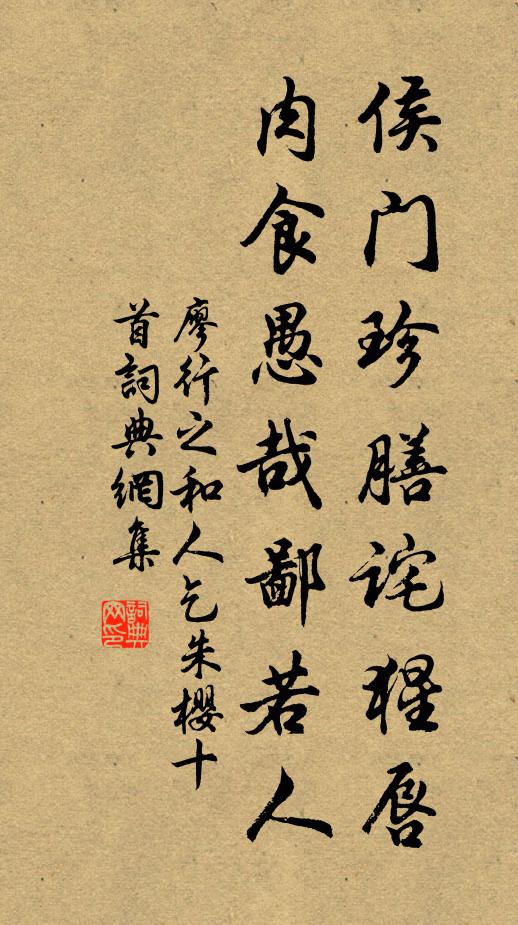 侯门珍膳诧猩唇
肉食愚哉鄙若人
廖行之和人乞朱樱十
首詞典網集
詞典網印